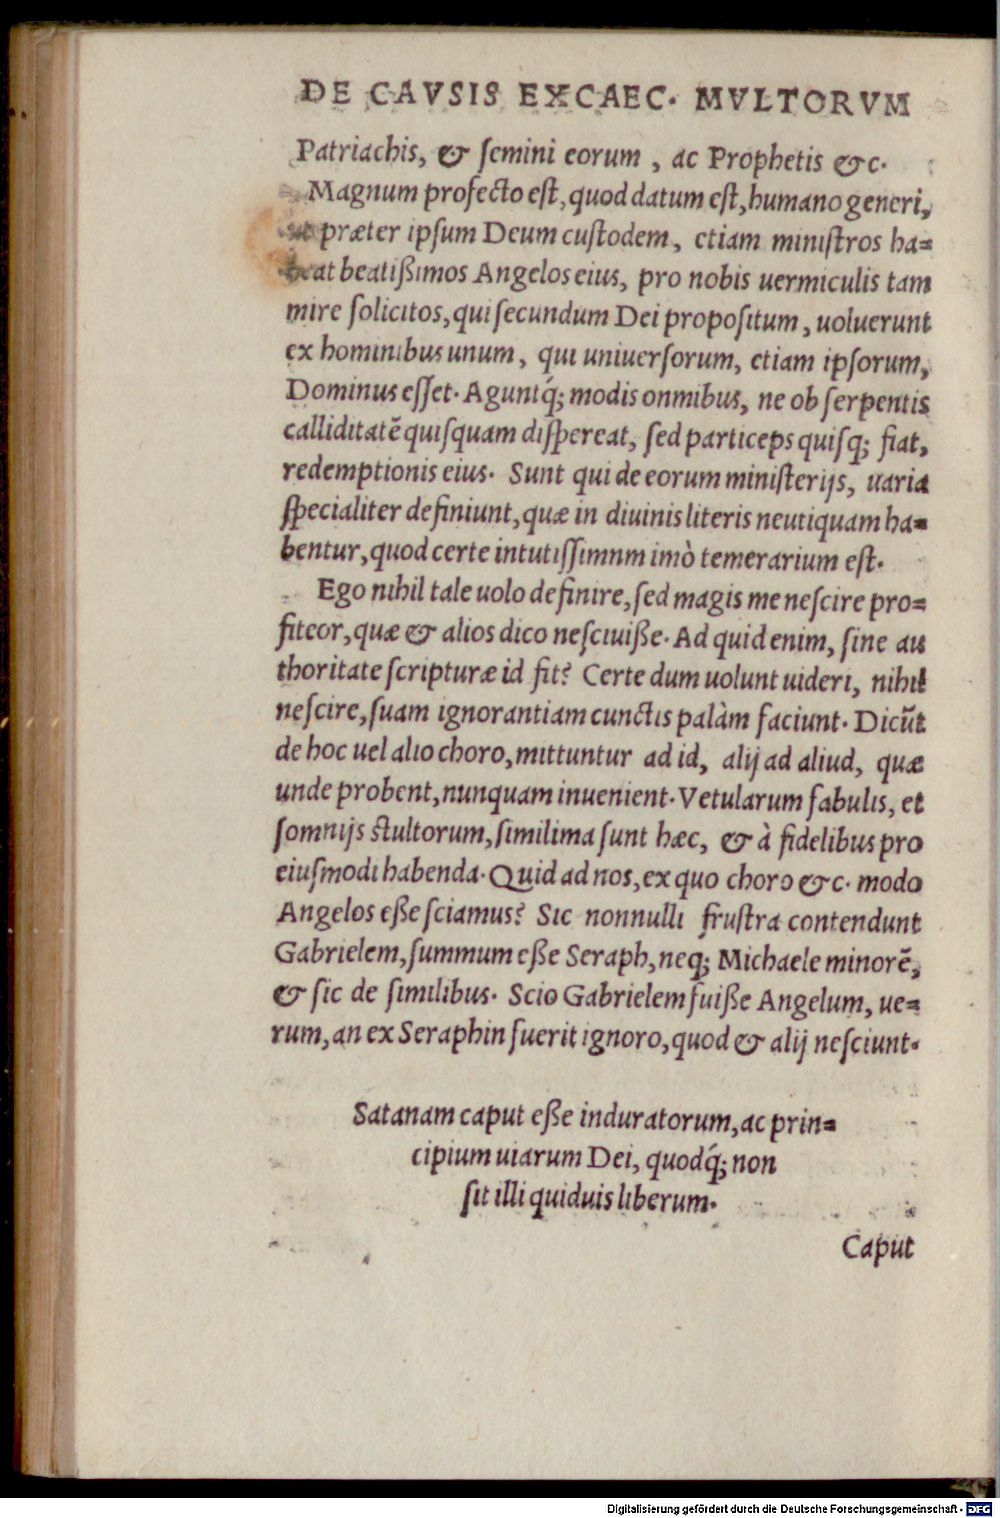 DE CAVSIS EXCAEC. MVLTORVM
Patriachis, & semini eorum, ac Prophetis &c.
Magnum profecto est, quod datum est, humano generi,
ut præter ipsum Deum custodem, etiam ministros ha=
beat beatißimos Angelos eius, pro nobis uermiculis tam
mire solicitos, qui secundum Dei propositum, uoluerunt
ex hominibus unum, qui uniuersorum, etiam ipsorum,
Dominus esset. Aguntq́; modis onmibus, ne ob serpentis
calliditatē quisquam dispereat, sed particeps quisq; fiat,
redemptionis eius. Sunt qui de eorum ministerijs, uaria
specialiter definiunt, quæ in diuinis literis neutiquam ha=
bentur, quod certe intutissimnm imò temerarium est.
Ego nihil tale uolo definire, sed magis me nescire pro=
fiteor, quæ & alios dico nesciuiße. Ad quid enim, sine au
thoritate scripturæ id fit? Certe dum uolunt uideri, nihil
nescire, suam ignorantiam cunctis palàm faciunt. Dicūt
de hoc uel alio choro, mittuntur ad id, alij ad aliud, quæ
unde probent, nunquam inuenient. Vetularum fabulis, et
somnijs stultorum, similima sunt hæc, & à fidelibus pro
eiusmodi habenda. Quid ad nos, ex quo choro &c. modo
Angelos eße sciamus? Sic nonnulli frustra contendunt
Gabrielem, summum eße Seraph, neq; Michaele minorē,
& sic de similibus. Scio Gabrielem fuiße Angelum, ue=
rum, an ex Seraphin fuerit ignoro, quod & alij nesciunt.
Satanam caput eße induratorum, ac prin=
cipium uiarum Dei, quodq́; non
sit illi quiduis liberum.
Caput
Digitalisierung gefördert durch die Deutsche Forschungsgemeinschaft - DFG